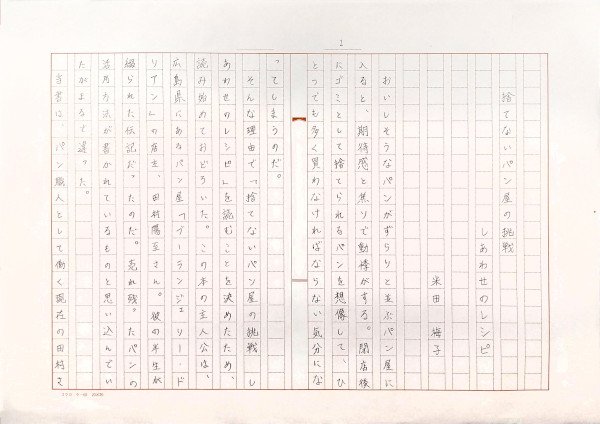 1
捨てないパン屋の挑戦
しあわせのレシピ
米田 梅子
おいしそうなパンがずらりと並ぶパン屋に
入ると、期待感と焦りで動悸がする。閉店後
にゴミとして捨てられるパンを想像して、ひ
とつでも多く買わなければならない気分にな
ってしまうのだ。
そんな理由で「捨てないパン屋の挑戦 し
あわせのレシピ」を読むことを決めたため、
読み始めておどろいた。この本の主人公は、
広島県にあるパン屋「ブーランジェリー・ド
リアン」の店主、田村陽至さん。彼の半生が
綴られた伝記だったのだ。売れ残ったパンの
活用方法が書かれているものと思い込んでい
たがまるで違った。
当書は、パン職人として働く現在の田村さ